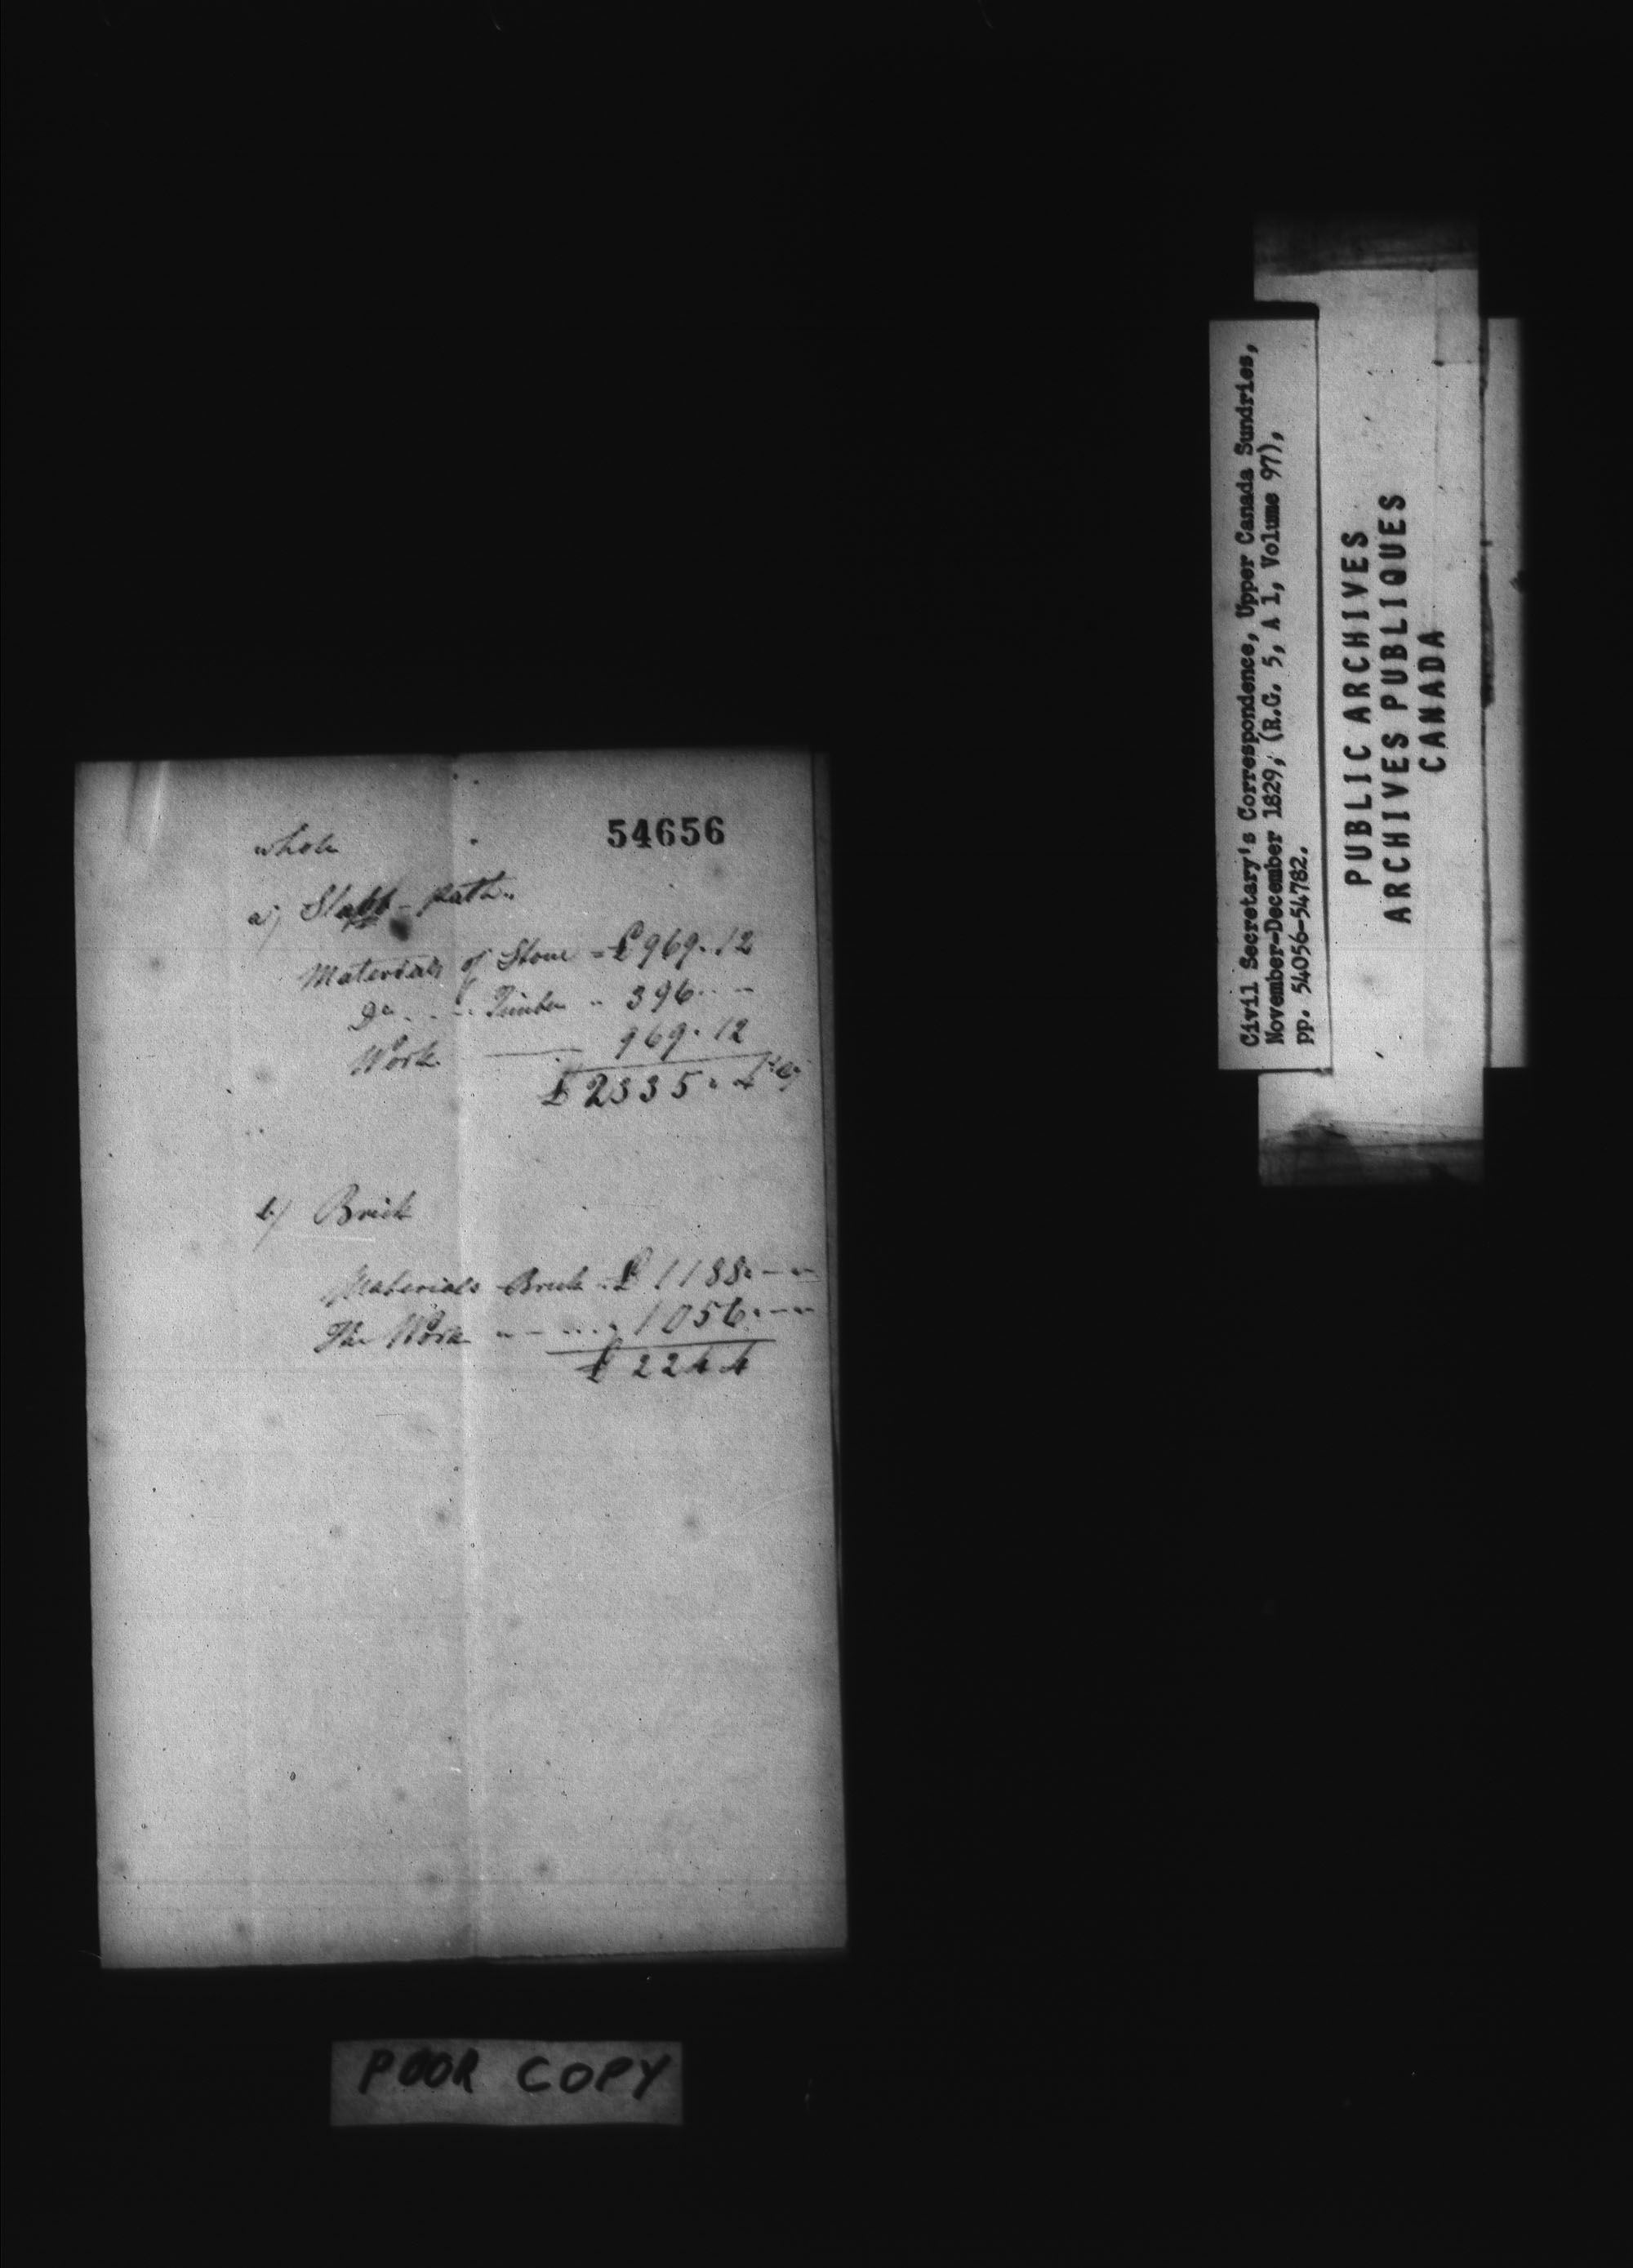 54656
whole
a) Flagg-path.
Materials of Stone = £969.12
Do .. .. Timber .. 396.. --
Work 969.12
£2335. 4
b) Brick
Materials Brick .. £1188. -- --
The Work .. -- .... 1056. -- --
£2244
POOR COPY
Civil Secretary's Correspondence, Upper Canada Sundries,
November-December 1829, (R.G. 5, A 1, Volume 97),
pp. 54056-54782.
PUBLIC ARCHIVES
ARCHIVES PUBLIQUES
CANADA